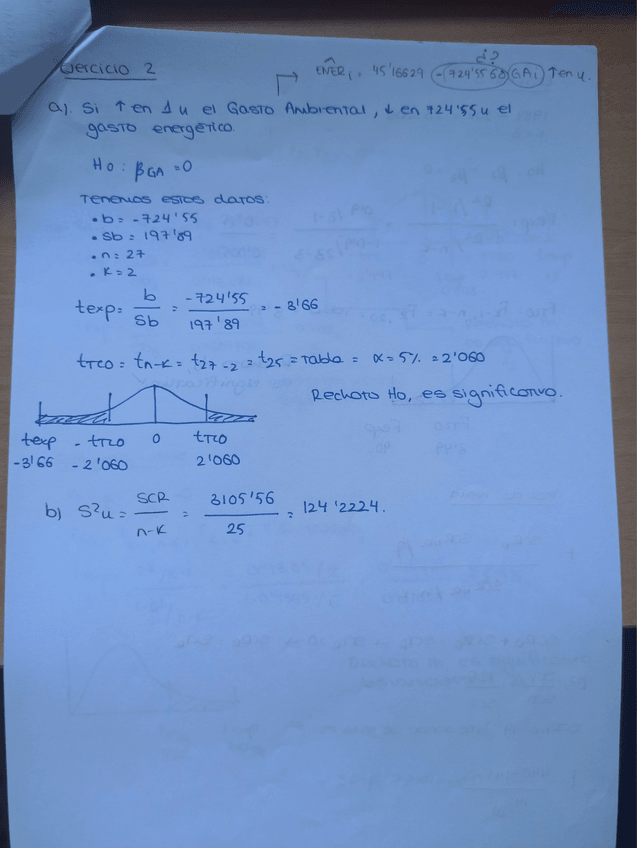 Ejercicio 2
¿?
ENER̂i = 45'16629 -(724'5568) GAi ↑ en u.
a). Si ↑ en 1 u el Gasto Ambiental, ↓ en 724'55 u el
gasto energético.
Ho: βGA = 0
Tenemos estos datos:
• b = -724'55
• Sb = 197'89
• n = 27
• K = 2
texp = b/Sb = -724'55/197'89 = -3'66
tTCO = tn-K = t27-2 = t25 = Tabla = α = 5% = 2'060
Rechazo Ho, es significativo.
texp -tTCO 0 tTCO
-3'66 -2'060 2'060
b) S²u = SCR/n-K = 3105'56/25 = 124'2224.